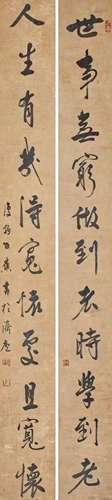 世事無窮做到老時學到老
人生有幾得寬懷處且寬懷